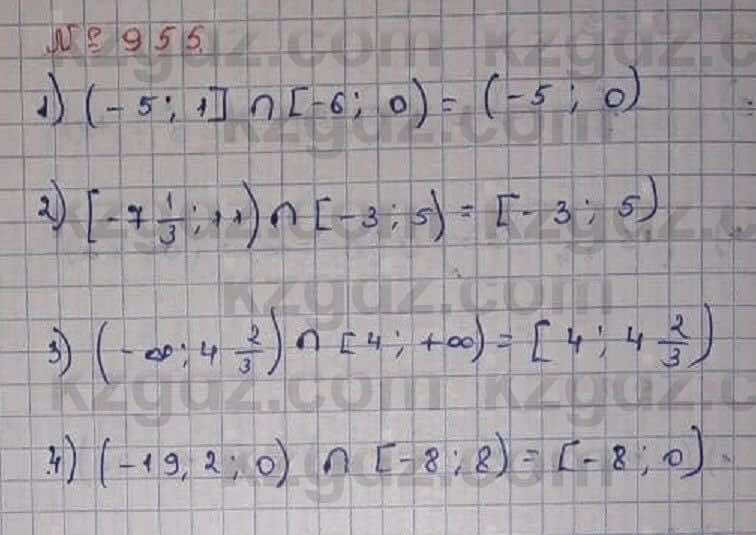 № 955.
kzgdz.com
1) (-5; 1] ∩ [-6; 0) = (-5; 0)
kzgdz.com
2) [-7 1/3; 11) ∩ [-3; 5) = [-3; 5)
kzgdz.com
kzgdz.com
3) (-∞; 4 2/3) ∩ [4; +∞) = [4; 4 2/3)
kzgdz.com
kzgdz.com
4) (-19,2; 0) ∩ [-8; 8) = [-8; 0)